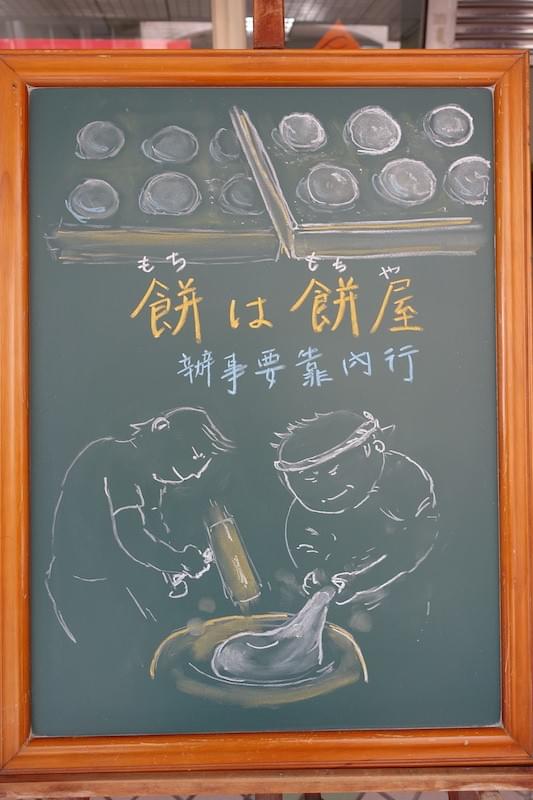 もち もち や
餅は餅屋
辦事要靠內行